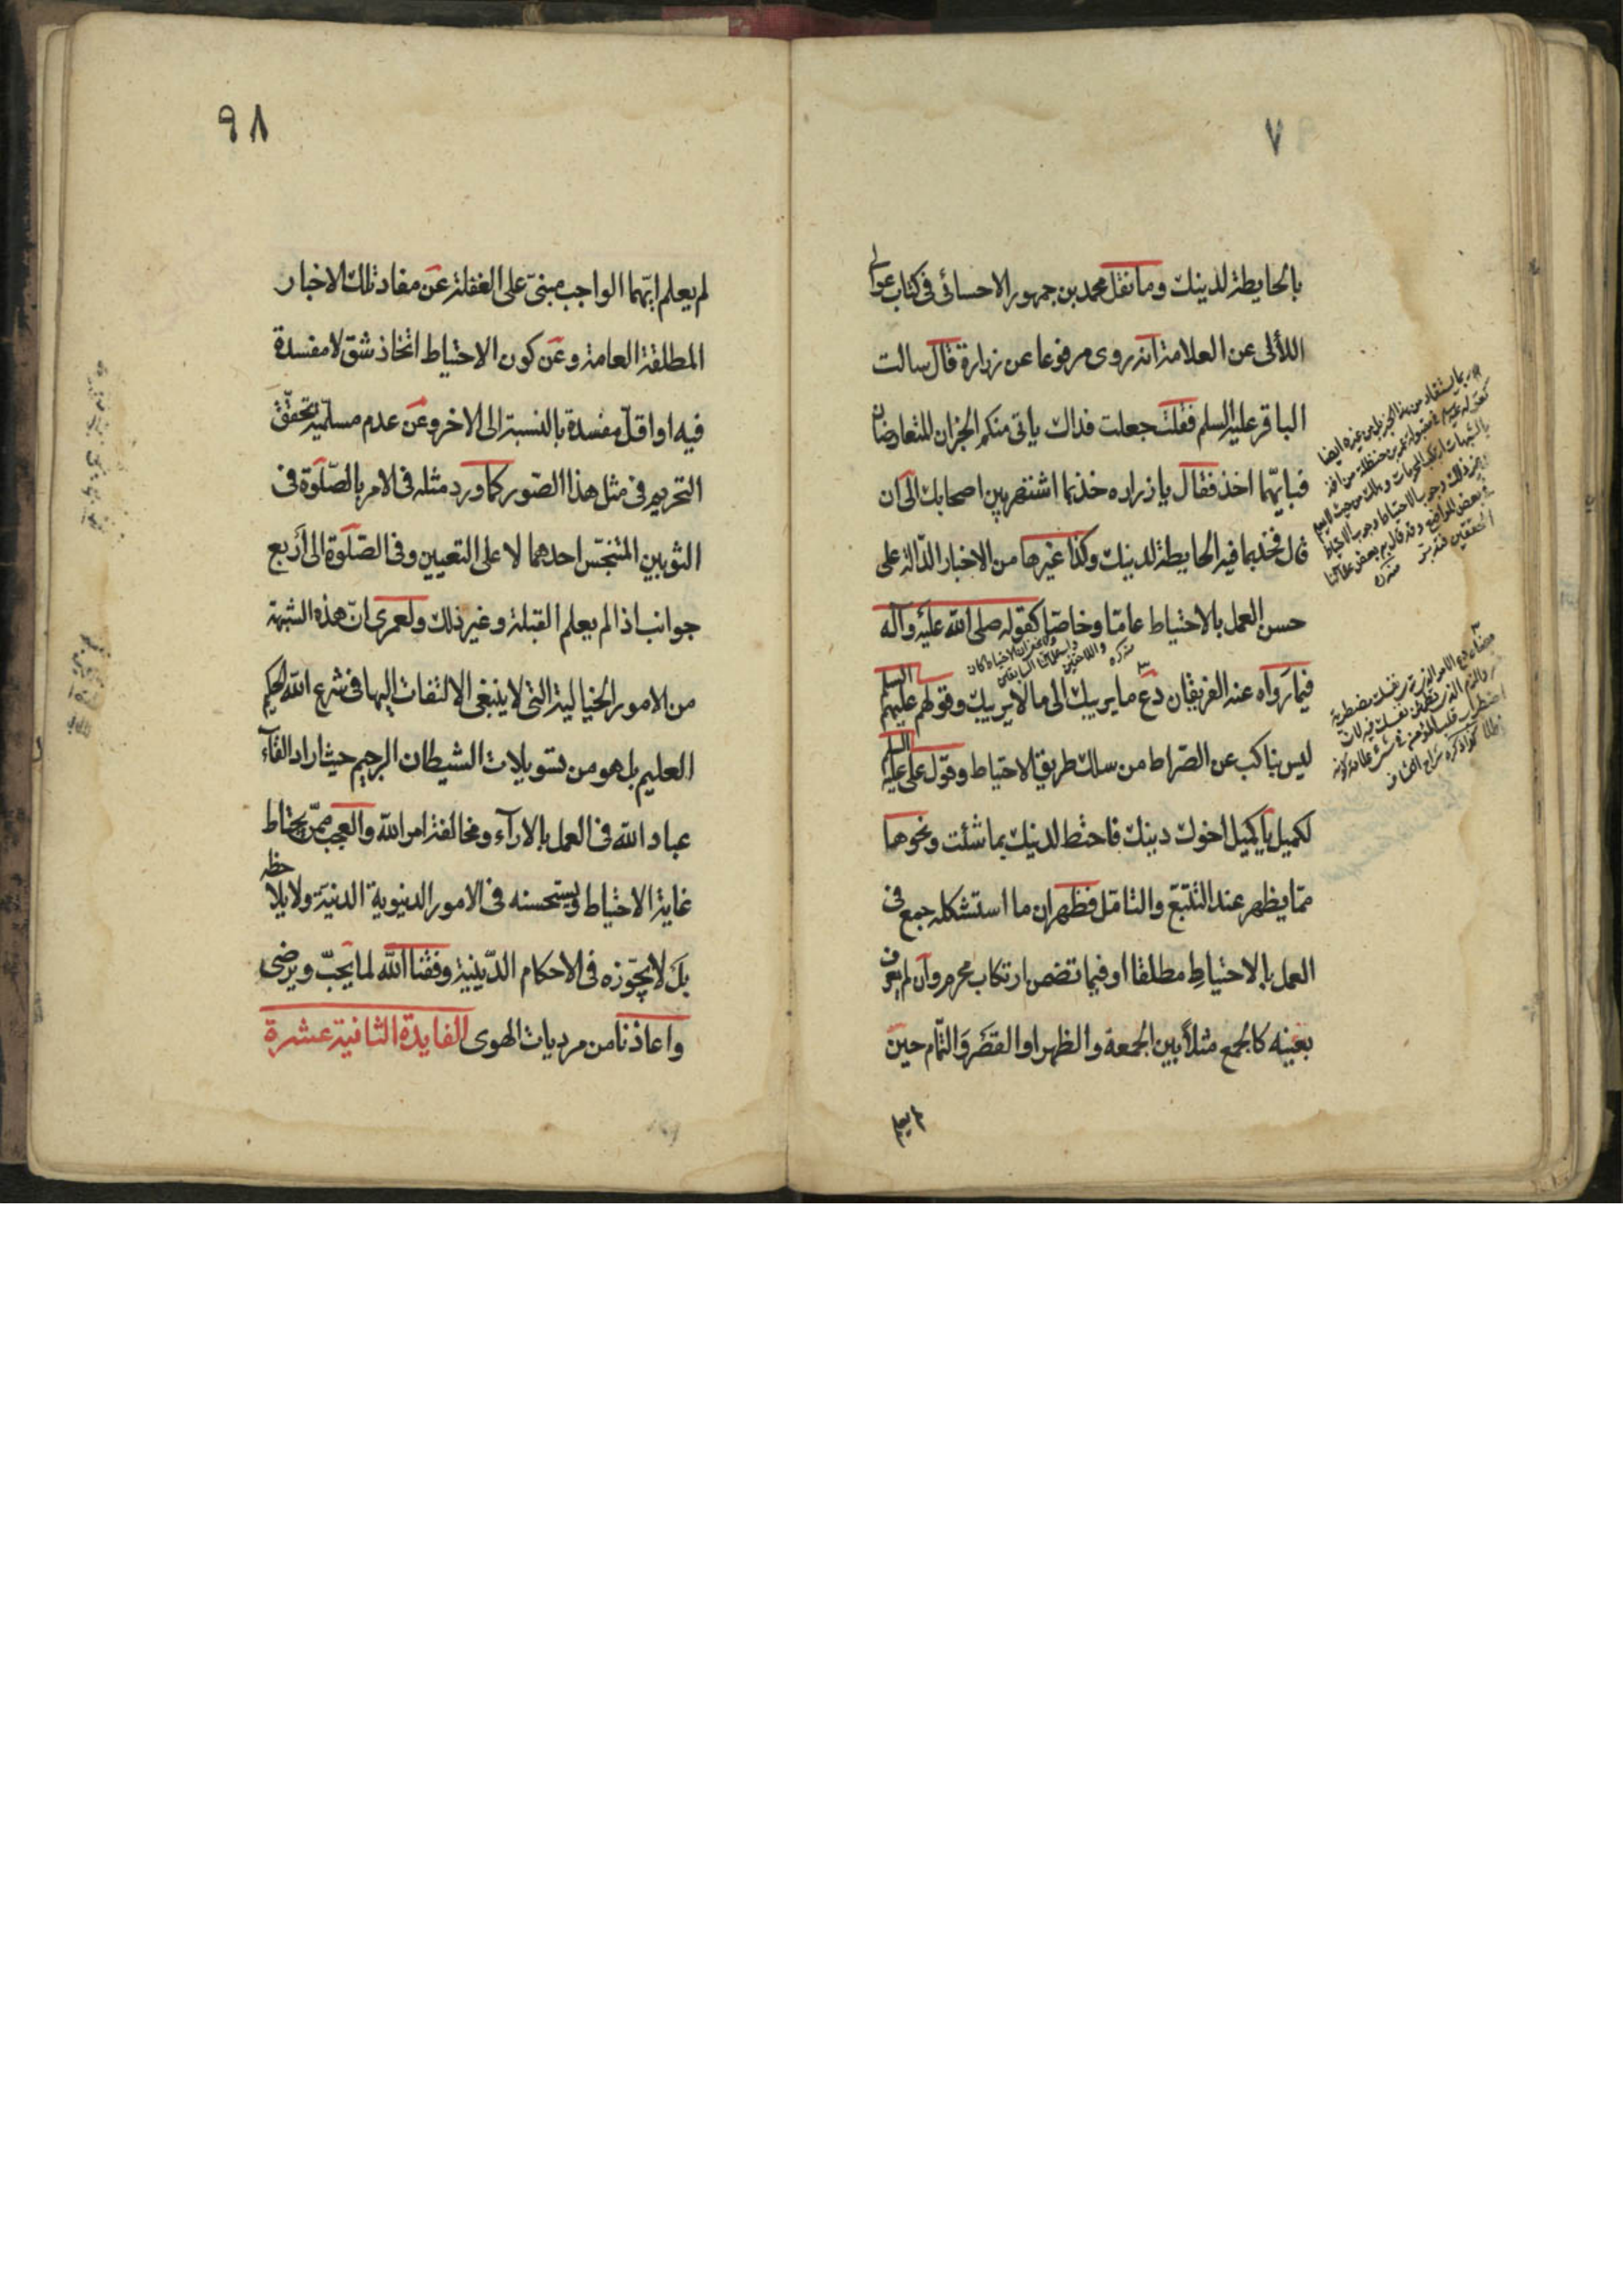 ٧
بالحايطة لدينك وما نقل محمد بن جمهور الاحسائى فى كتاب عوالى
اللألى عن العلامة انه روى مرفوعا عن زرارة قال سالت
الباقر عليه السلم فقلت جعلت فداك ياتى منكم الخبران المتعارضان
فبايهما اخذ فقال يا زراره خذ بما اشتهر بين اصحابك الى ان
قال فخذ بما فيه الحايطة لدينك وكذا غيرها من الاخبار الدالة على
حسن العمل بالاحتياط عامّا وخاصّا كقوله صلى الله عليه وآله
فيما رواه عنه الفريقان دع ما يريبك الى ما لا يريبك وقولهم عليهم السلم
ليس بناكب عن الصراط من سلك طريق الاحتياط وقول على عليه السلم
لكميل يا كميل اخوك دينك فاحتط لدينك بما شئت ونحوهما
ممّا يظهر عند التتبّع والتامّل فظهر ان ما استشكله جمع فى
العمل بالاحتياط مطلقا او فيما تضمن ارتكاب محرم وان لم يعرف
بعينه كالجمع مثلاً بين الجمعة والظهر او القصر والتّمام حين
لم يعلم
٩٨
لم يعلم ايّهما الواجب مبنىّ على الغفلة عن مفاد تلك الاخبار
المطلقة العامة وعن كون الاحتياط اتخاذ شق لا مفسدة
فيه او اقلّ مفسدة بالنسبة الى الاخر وعن عدم مسلّمية تحقّق
التحريم فى مثل هذا الصّور كما ورد مثله فى الامر بالصّلوة فى
الثوبين المتنجّس احدهما لا على التعيين وفى الصّلوة الى أربع
جوانب اذا لم يعلم القبلة وغير ذلك ولعمرى انّ هذه الشبهة
من الامور الخيالية التى لا ينبغى الالتفات اليها فى شرع الله الحكيم
العليم بل هو من تسويلات الشيطان الرجيم حيث اراد القآء
عباد الله فى العمل بالارآء ومخالفة امر الله والعجب ممّن يحتاط
غاية الاحتياط ويستحسنه فى الامور الدنيوية الدنيّة ولا يلاحظه
بل لا يجوّزه فى الاحكام الدّينية وفقنا الله لما يحبّ ويرضى
واعاذنا من مرديات الهوى الفايدة الثانية عشرة